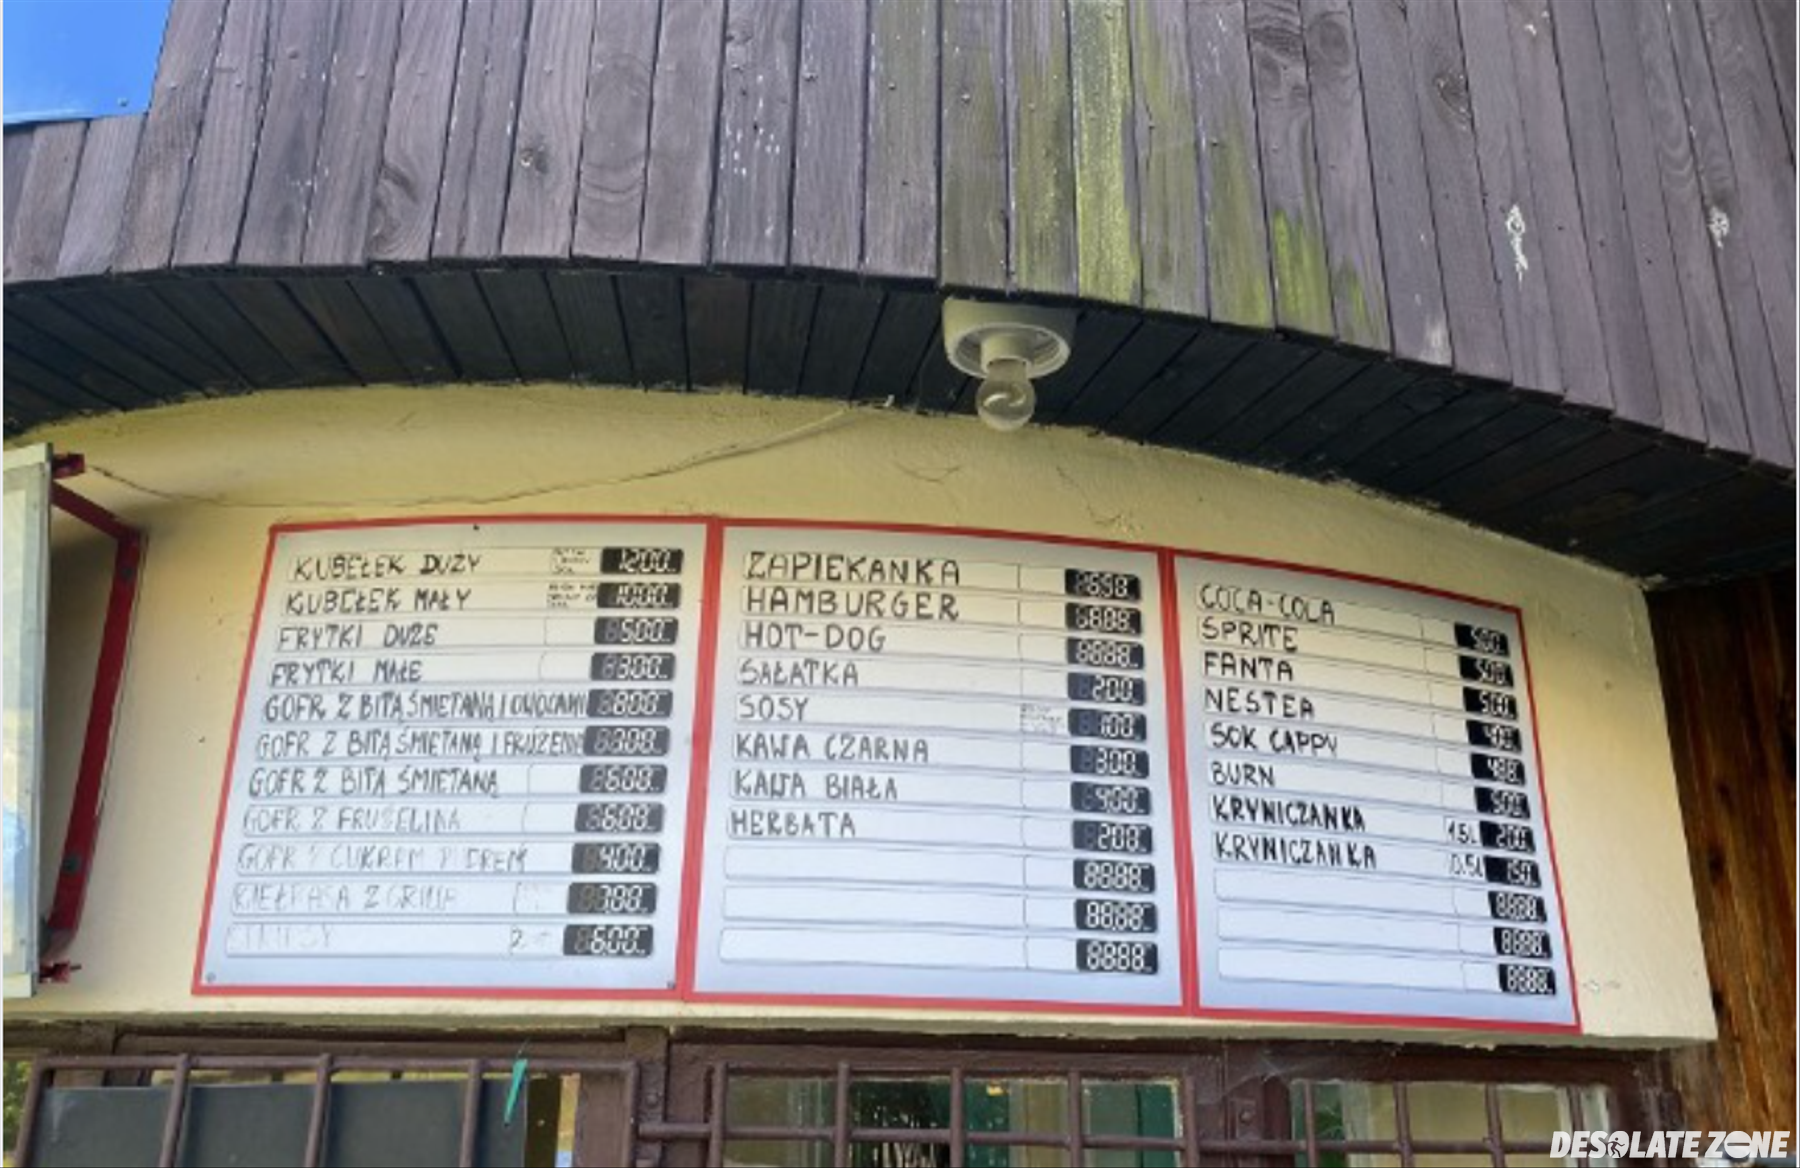 KUBEŁEK DUŻY 12.00
KUBEŁEK MAŁY 10.00
FRYTKI DUŻE 5.00
FRYTKI MAŁE 3.00
GOFR Z BITĄ ŚMIETANĄ I OWOCAMI 8.00
GOFR Z BITĄ ŚMIETANĄ I
GOFR Z BITĄ ŚMIETANĄ 6.00
GOFR Z FRUŻELINĄ 6.00
GOFR Z CUKREM PUDREM 4.00
KIEŁBASA Z GRILLA
6.00
ZAPIEKANKA
HAMBURGER
HOT-DOG 88.88
SAŁATKA 2.00
SOSY 1.00
KAWA CZARNA 3.00
KAWA BIAŁA 4.00
HERBATA
88.88
88.88
88.88
COCA-COLA 5.00
SPRITE 5.00
FANTA 5.00
NESTEA
SOK CAPPY
BURN 5.00
KRYNICZANKA 1.5L 2.00
KRYNICZANKA 0.5L 1.50
88.88
88.88
88.88
DESOLATE ZONE